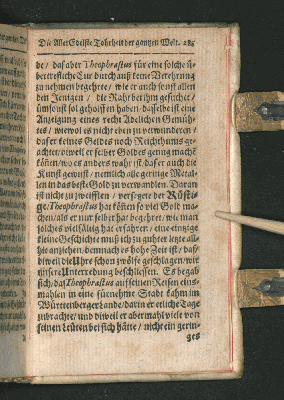 Die Aller Edelste Tohrheit der gantzen Welt. 285
de / daß aber Theophrastus für eine solche ü-
bertrefliche Cur durch auß keine Verehrung
zu nehmen begehrte / wie er auch sonst allen
den Jenigen / die Raht bey ihm gesuchet /
umsonst geholffen haben / dasselbe ist eine
Anzeigung eines recht Adelichen Gemüh-
tes / wiewol es nicht eben zu verwundern /
daß er keines Geldes noch Reichthums ge-
achtet / dieweil er selber Goldes genug machē
können / wo es anders wahr ist / daß er auch die
Kunst gewust / nemlich alle geringe Metal-
len in das beste Gold zu verwandlen. Daran
ist nicht zu zweifflen / versetzte der Rüsti-
ge / Theophrastus hat können so viel Gold ma-
chen / als er nur selber hat begehret / wie man
solches vielfältig hat erfahren / eine eintzige
kleine Geschichte muß ich zu guhter letzte all-
hie anziehen / demnach es hohe Zeit ist / daß /
dieweil die Uhre schon zwölfe geschlagen / wir
unsere Unterredung beschliessen. Es begab
sich / daß Theophrastus auf seinen Reisen eins-
mahlen in eine fürnehme Stadt kahm im
Würtenberger Lande / darin er etliche Tage
zubrachte / und dieweil er abermahl viele von
seinen Leüten bei sich hatte / nicht ein gerin-
ges